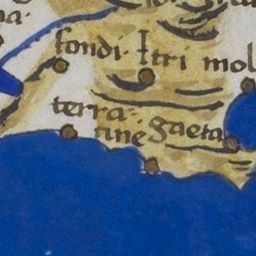 fondi Itri mol
terra
cine gaeta